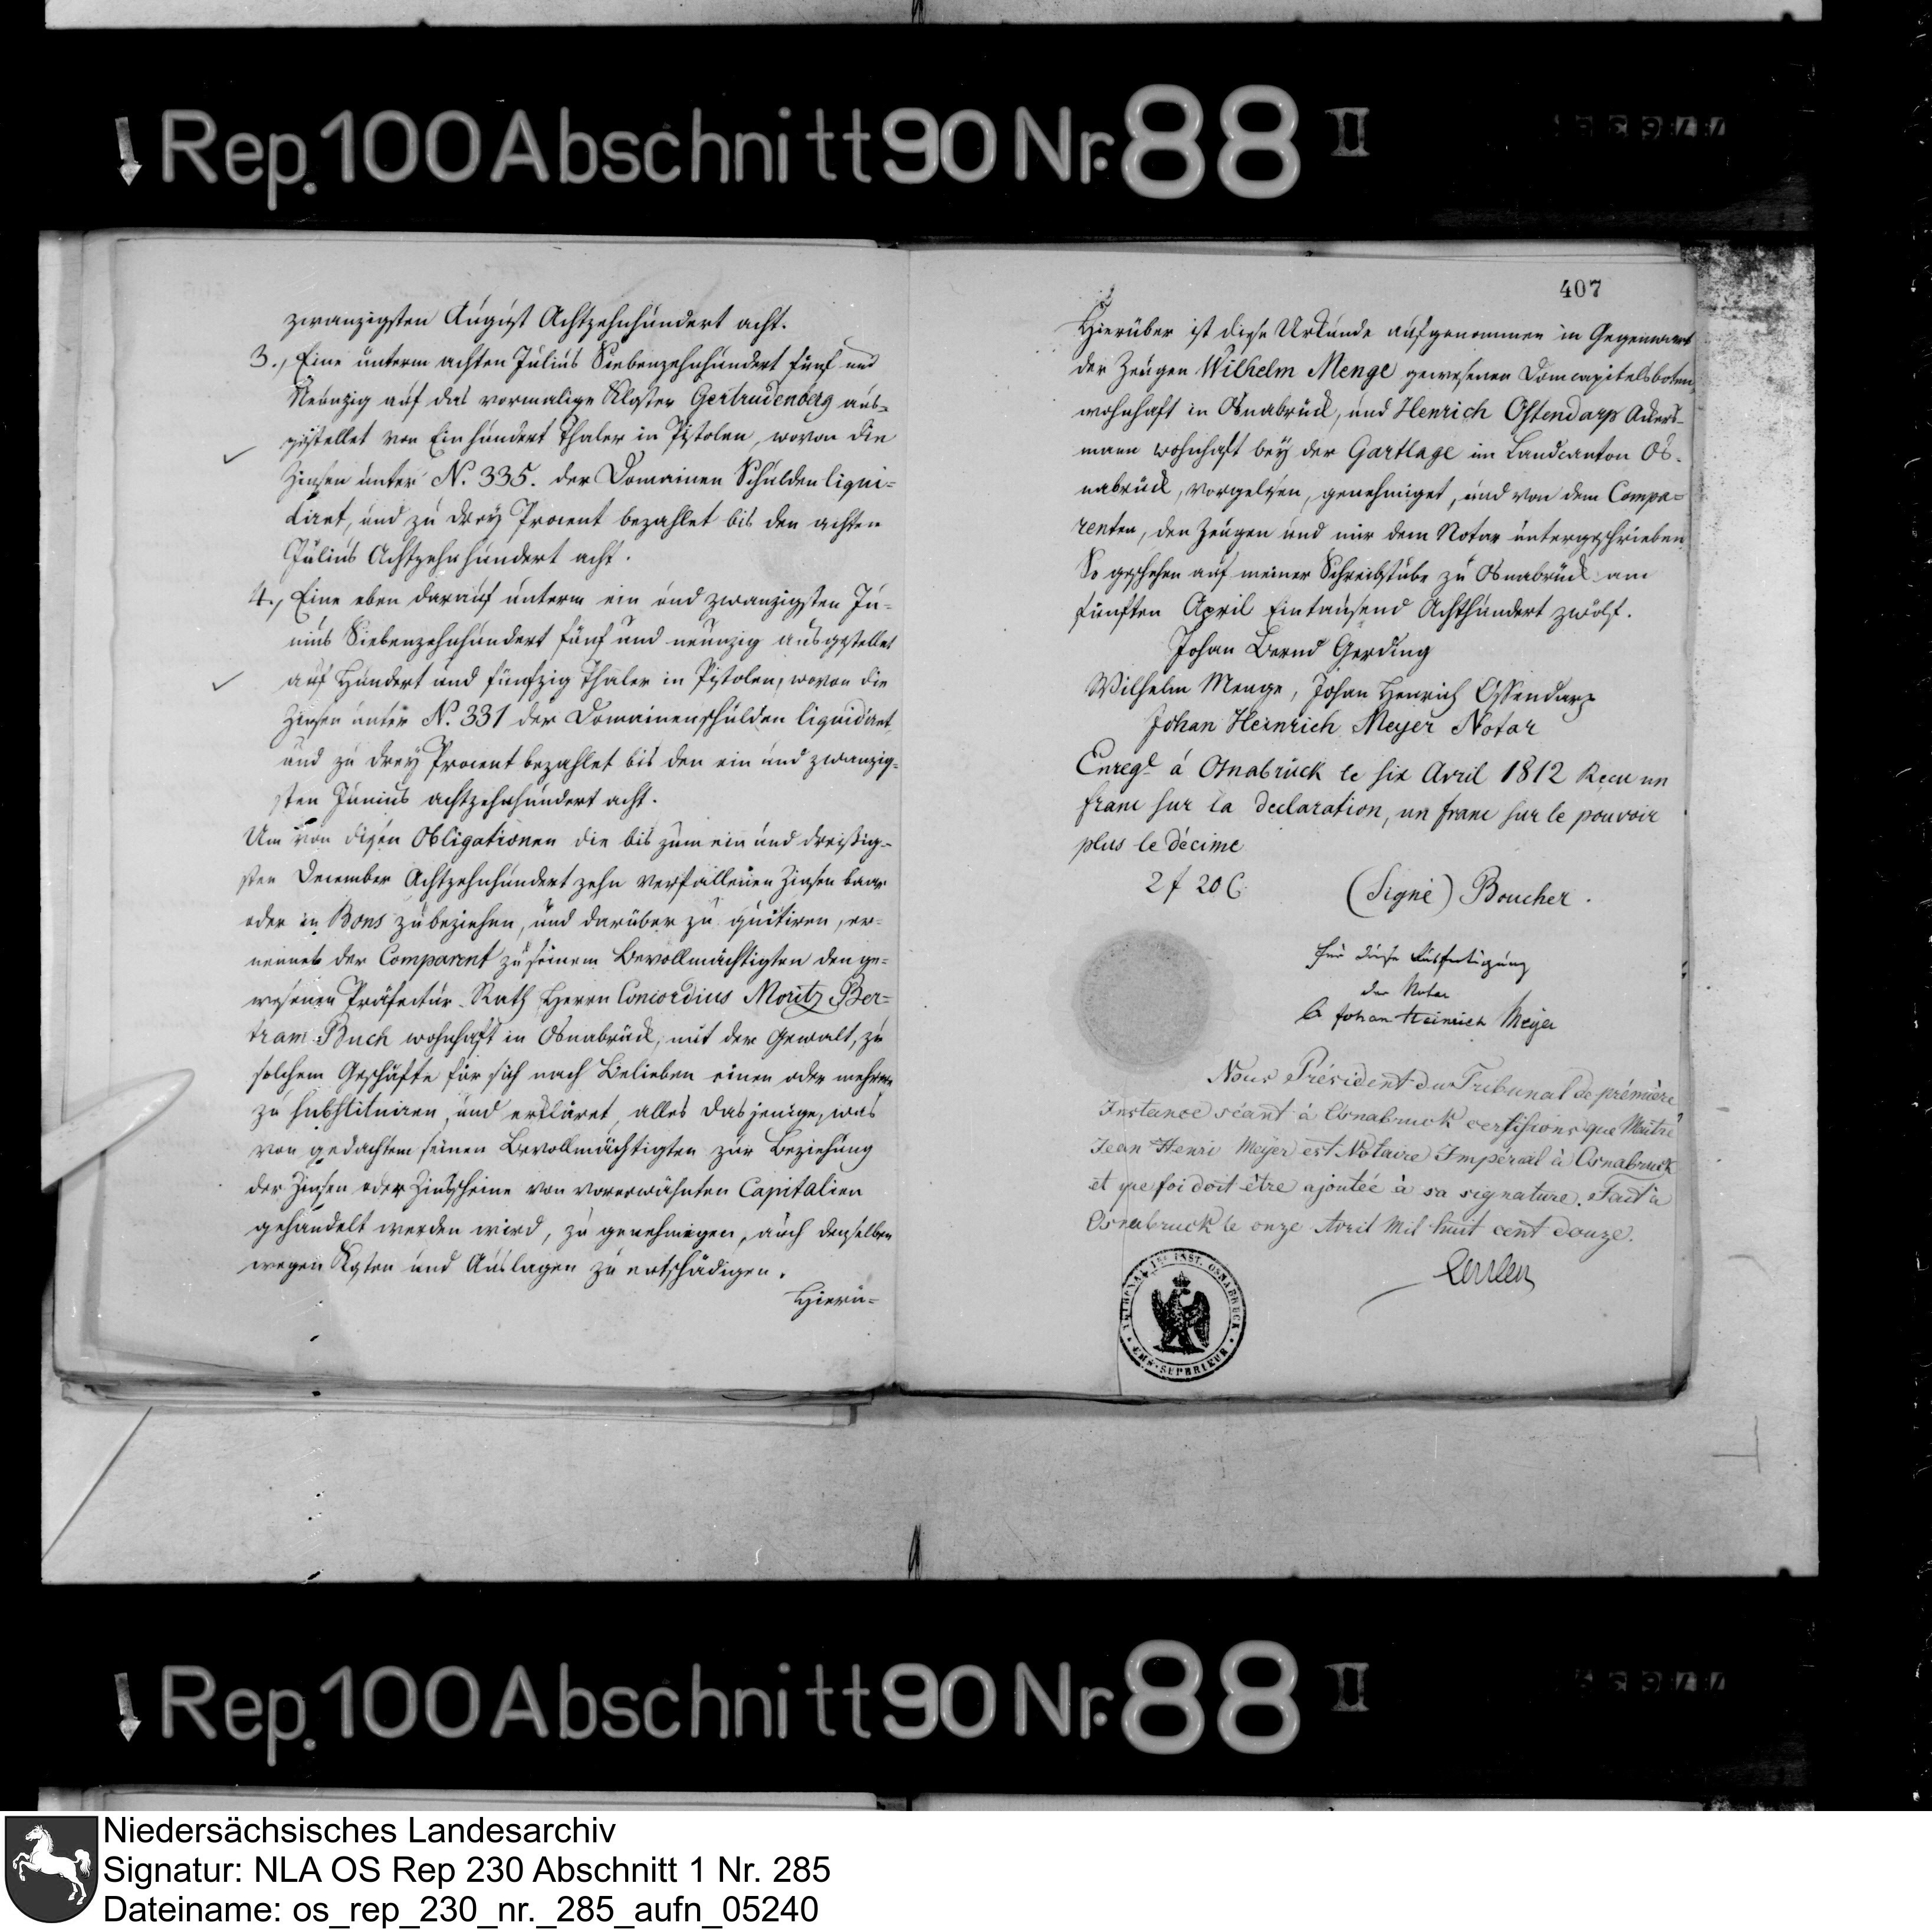 Rep. 100 Abschnitt 90 Nr. 88 II
zwanzigsten August Achtzehnhundert acht.
3., Eine unterm achten Julius Siebenzehnhundert fünf und
Neunzig auf das vormalige Kloster Gertrudenberg aus-
gestellet von Ein hundert Thaler in Pistolen, wovon die
Zinsen unter N. 335. der Domainen Schulden liqui-
diret, und zu drey Procent bezahlet bis den achten
Julius Achtzehnhundert acht.
4., Eine eben darauf unterm ein und zwanzigsten Ju-
nius Siebenzehnhundert fünf und neunzig ausgestellet
auf Hundert und fünfzig Thaler in Pistolen, wovon die
Zinsen unter N. 331 der Domainenschulden liquidiret,
und zu drey Procent bezahlet bis den ein und zwanzig-
sten Junius achtzehnhundert acht.
Um von diesen Obligationen die bis zum ein und dreißig-
sten December Achtzehnhundert zehn verfallenen Zinsen baar
oder in Bons zu beziehen, und darüber zu quitiren, er-
nennet der Comparent zu seinem Bevollmächtigten den ge-
wesenen Präfectur-Rath Herrn Concordius Moritz Ber-
tram Buch wohnhaft in Osnabrück, mit der Gewalt, zu
solchem Geschäfte für sich nach Belieben einen oder mehrere
zu substituiren, und erkläret, alles dasjenige, was
von gedachtem seinen Bevollmächtigten zur Beziehung
der Zinsen oder Zinsscheine von vorerwähnten Capitalien
gehandelt werden wird, zu genehmigen, auch denselben
wegen Kosten und Auslagen zu entschädigen.
Hierü-
407
Hierüber ist diese Urkunde aufgenommen in Gegenwart
der Zeugen Wilhelm Menge gewesenen Domcapitelsboten,
wohnhaft in Osnabrück, und Henrich Ostendarp Ackers-
mann wohnhaft bey der Gartlage im Landcanton Os-
nabrück, vorgelesen, genehmiget, und von dem Compa-
renten, den Zeugen und mir dem Notar untergeschrieben.
So geschehen auf meiner Schreibstube zu Osnabrück am
fünften April Eintausend Achthundert zwölf.
Johan Bernd Gerding
Wilhelm Menge, Johan Henrich Ossendarp
Johan Heinrich Meyer Notar
Enregé á Osnabrück le six Avril 1812 Recu un
franc sur la declaration, un franc sur le pouvoir
plus le décime
2 f 20 C.
(Signé) Boucher.
Für diese Ausfertigung
der Notar
Johan Heinrich Meyer
Nous Président du Tribunal de prémière
Instance séant à Osnabruck certifions que Maitre
Jean Henri Meyer est Notaire Impérial à Osnabruck
et que foi doit être ajoutée à sa signature. Fait à
Osnabruck le onze Avril Mil huit cent douze.
TRIBUNAL 1RE INST. OSNABRUCK
EMS-SUPERIEUR
Rep. 100 Abschnitt 90 Nr. 88 II
Niedersächsisches Landesarchiv
Signatur: NLA OS Rep 230 Abschnitt 1 Nr. 285
Dateiname: os_rep_230_nr._285_aufn_05240